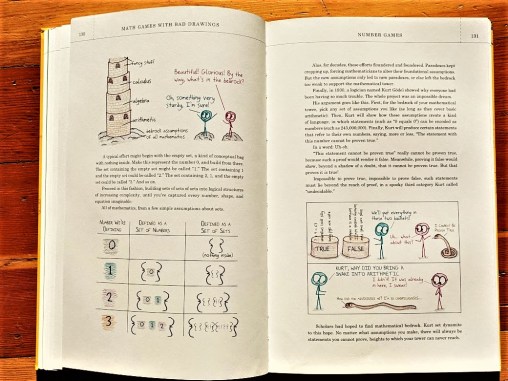 130
MATH GAMES WITH BAD DRAWINGS
fancy stuff
calculus
algebra
arithmetic
bedrock assumptions
of all mathematics
Beautiful! Glorious! By the
way, what's in the bedrock?
Oh, something very
sturdy, I'm sure!
A typical effort might begin with the empty set, a kind of conceptual bag
with nothing inside. Make this represent the number 0, and build from there.
The set containing the empty set might be called "1." The set containing 1
and the empty set could be called "2." The set containing 2, 1, and the empty
set could be called "3." And so on.
Proceed in this fashion, building sets of sets of sets into logical structures
of increasing complexity, until you've captured every number, shape, and
equation imaginable.
All of mathematics, from a few simple assumptions about sets.
NUMBER WE'RE
DEFINING
DEFINED AS A
SET OF NUMBERS
DEFINED AS A
SET OF SETS
0
{ }
(nothing inside)
1
{ 0 }
{ { } }
2
{ 0 1 }
3
{ 0 1 2 }
NUMBER GAMES
131
Alas, for decades, these efforts foundered and floundered. Paradoxes kept
cropping up, forcing mathematicians to alter these foundational assumptions.
But the new assumptions only led to new paradoxes, or else left the bedrock
too weak to support the mathematical tower.
Finally, in 1930, a logician named Kurt Gödel showed why everyone had
been having so much trouble. The whole project was an impossible dream.
His argument goes like this. First, for the bedrock of your mathematical
tower, pick any set of assumptions you like (as long as they cover basic
arithmetic). Then, Kurt will show how these assumptions create a kind
of language, in which statements (such as "0 equals 0") can be recorded as
numbers (such as 243,000,000). Finally, Kurt will produce certain statements
that refer to their own numbers, saying, more or less, "The statement with
this number cannot be proven true."
In a word: Uh-oh.
"This statement cannot be proven true" really cannot be proven true,
because such a proof would render it false. Meanwhile, proving it false would
show, beyond a shadow of a doubt, that it cannot be proven true. But that
proves it is true!
Impossible to prove true, impossible to prove false, such statements
must lie beyond the reach of proof, in a spooky third category Kurt called
"undecidable."
TRUE
FALSE
We'll put everything in
these two buckets!
Uh... what
about this?
I Cannot Be
Proven True
KURT, WHY DID YOU BRING A
SNAKE INTO ARITHMETIC
I didn't! It was already
in here, I swear!
Scholars had hoped to find mathematical bedrock. Kurt set dynamite
to this hope. No matter what assumptions you make, there will always be
statements you cannot prove, heights to which your tower can never reach.